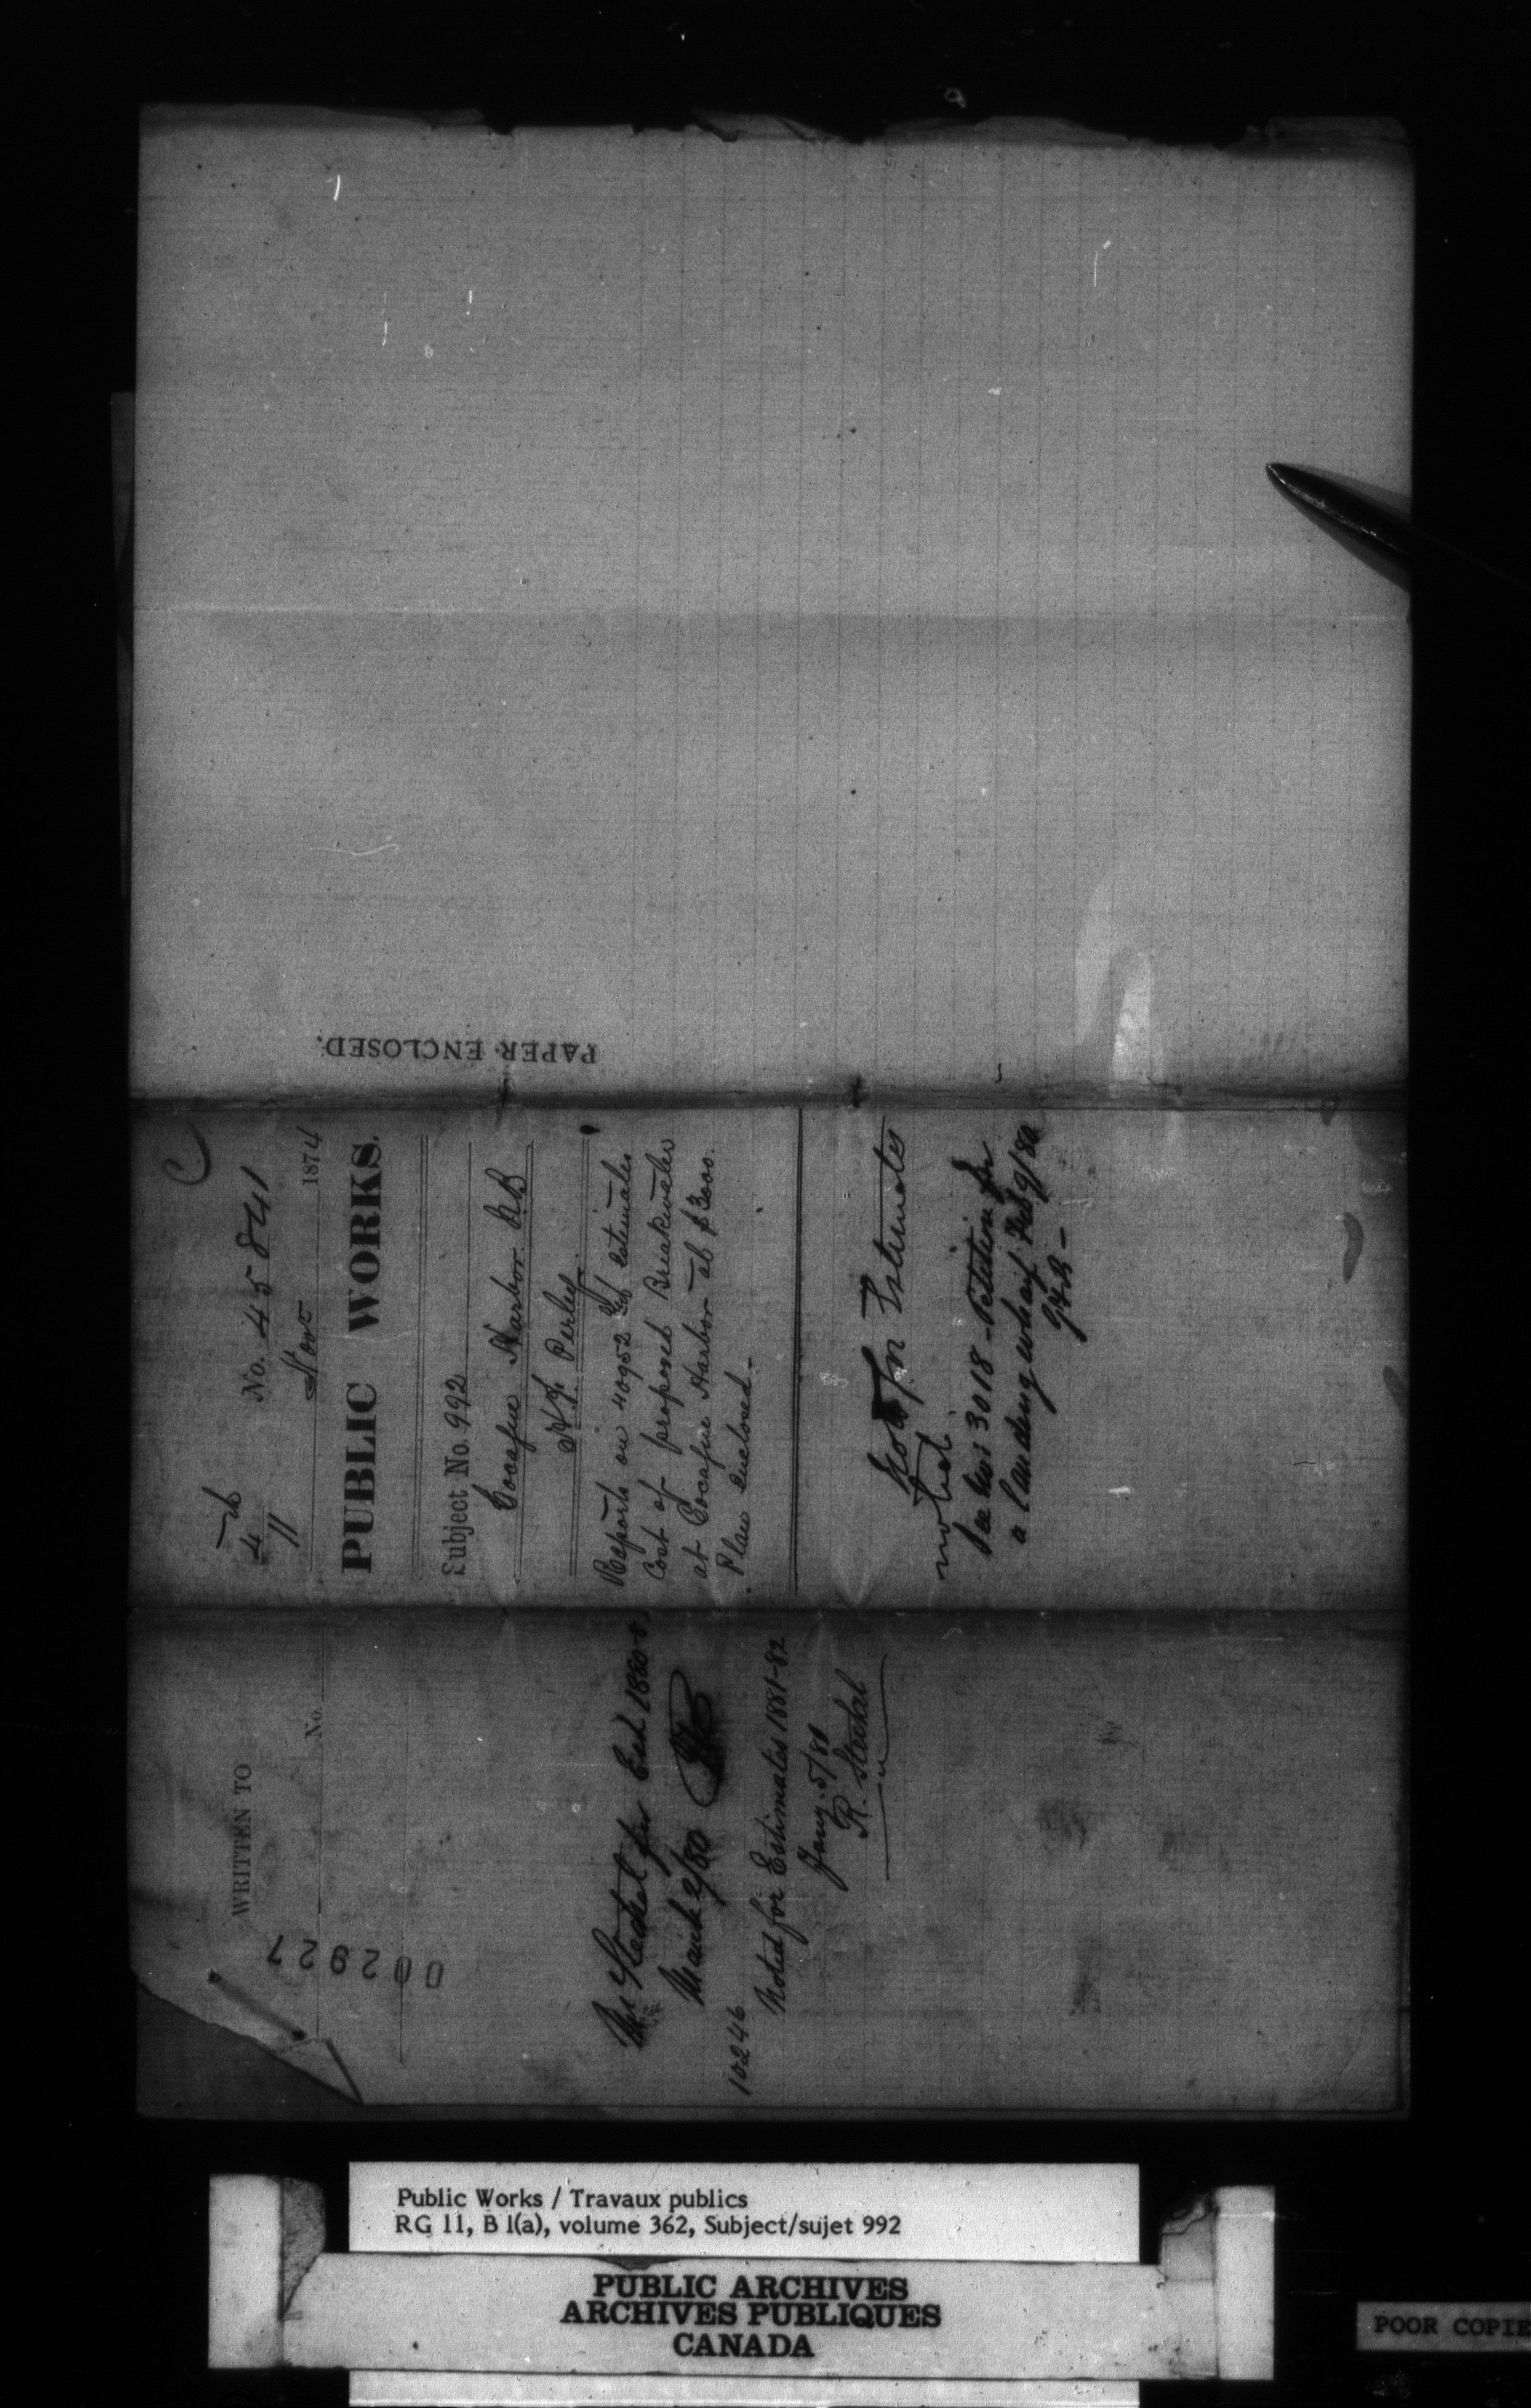 C
No. 45841
Nov 1874
PUBLIC WORKS.
Subject No. 992
Cocagne Harbor N.B
H.F. Perley.
Reports on 40952 estimates
Cost of proposed Breakwater
at Cocagne Harbor at $3000.
Plan enclosed.
Estimates
noted.
See No. 3018 - Petition for
a landing wharf Feb 9/80
PAPER ENCLOSED.
WRITTEN TO
No.
002927
Mr Steckel for Est. 1880-8
March 2/80
10246
Noted for Estimates 1881-82
Jany. 5/81
R. Steckel
Public Works / Travaux publics
RG 11, B 1(a), volume 362, Subject/sujet 992
PUBLIC ARCHIVES
ARCHIVES PUBLIQUES
CANADA
POOR COPIE